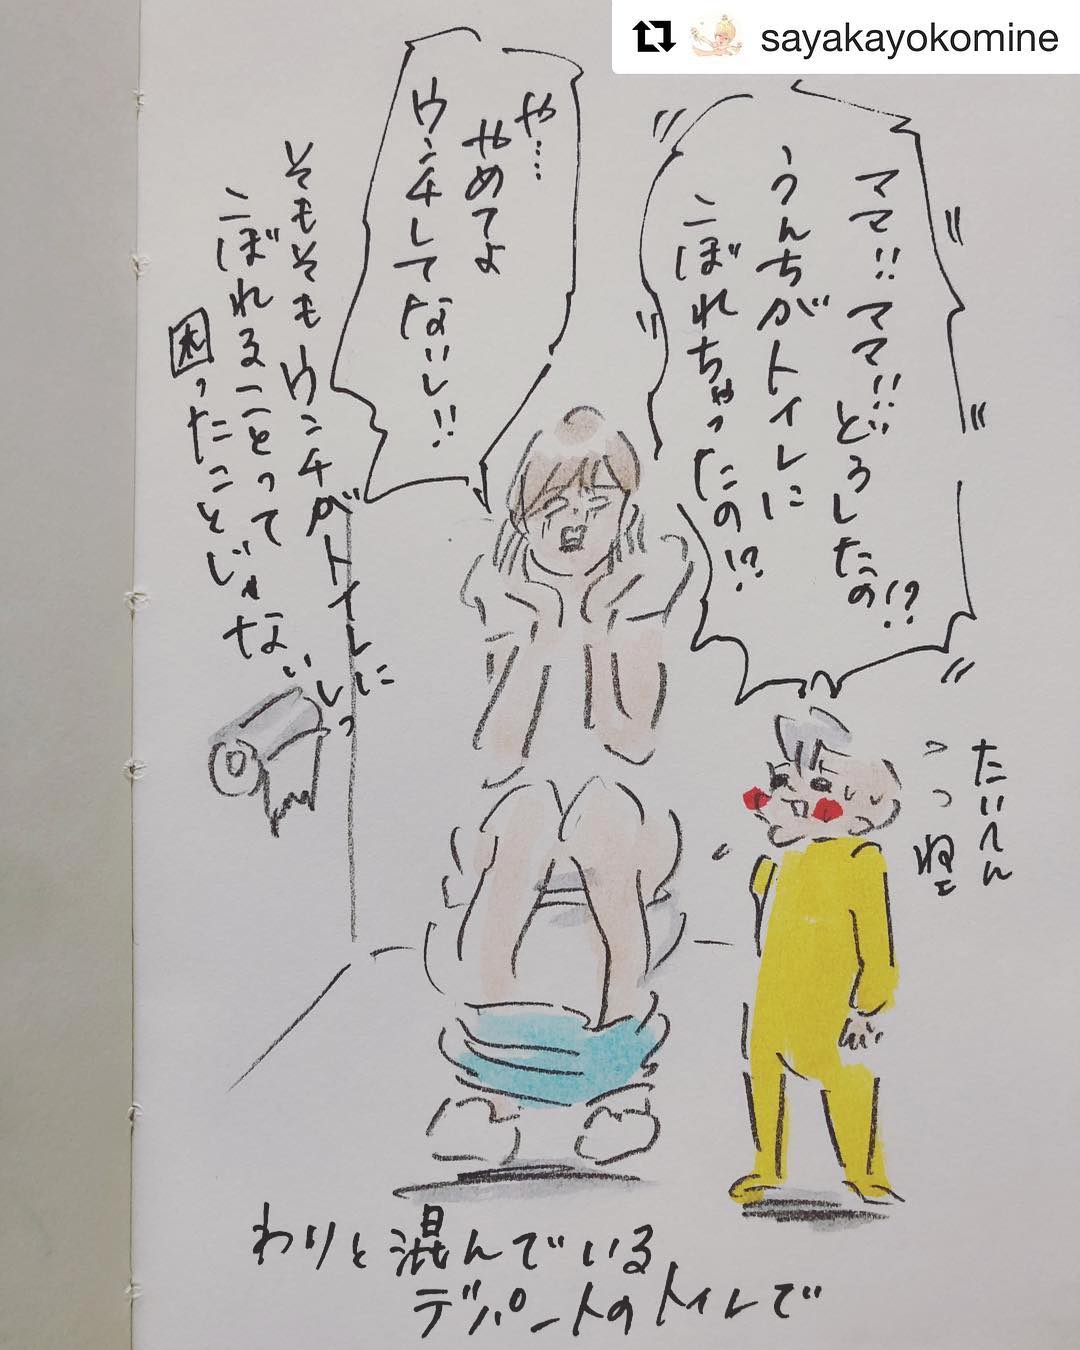 sayakayokomine
ママ!!ママ!!どうしたの!?
うんちがトイレに
こぼれちゃったの!?
や……
やめてよ
ウンチしてないし!!
そもそもウンチがトイレに
こぼれることって
困ったことじゃないしっ
たいへん
っつねぇ
わりと混んでいる
デパートのトイレで